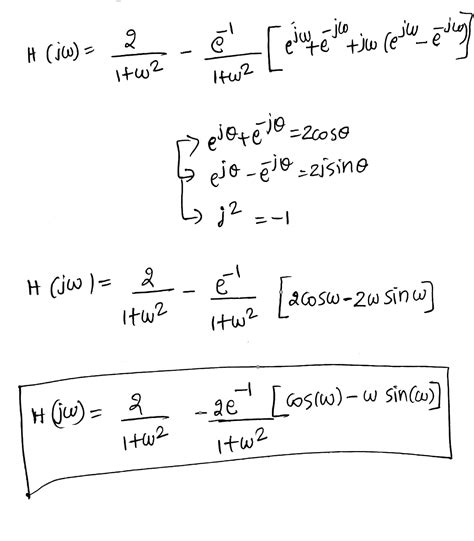 H (jω) = 2/(1+ω²) - e⁻¹/(1+ω²) [e^{jω}+e^{-jω}+jω(e^{jω}-e^{-jω})]
→ e^{jθ}+e^{-jθ}=2cosθ
→ e^{jθ}-e^{-jθ}=2jsinθ
→ j² = -1
H (jω) = 2/(1+ω²) - e⁻¹/(1+ω²) [2cosω-2ω sinω]
H (jω) = 2/(1+ω²) - 2e⁻¹/(1+ω²) [cos(ω) - ω sin(ω)]